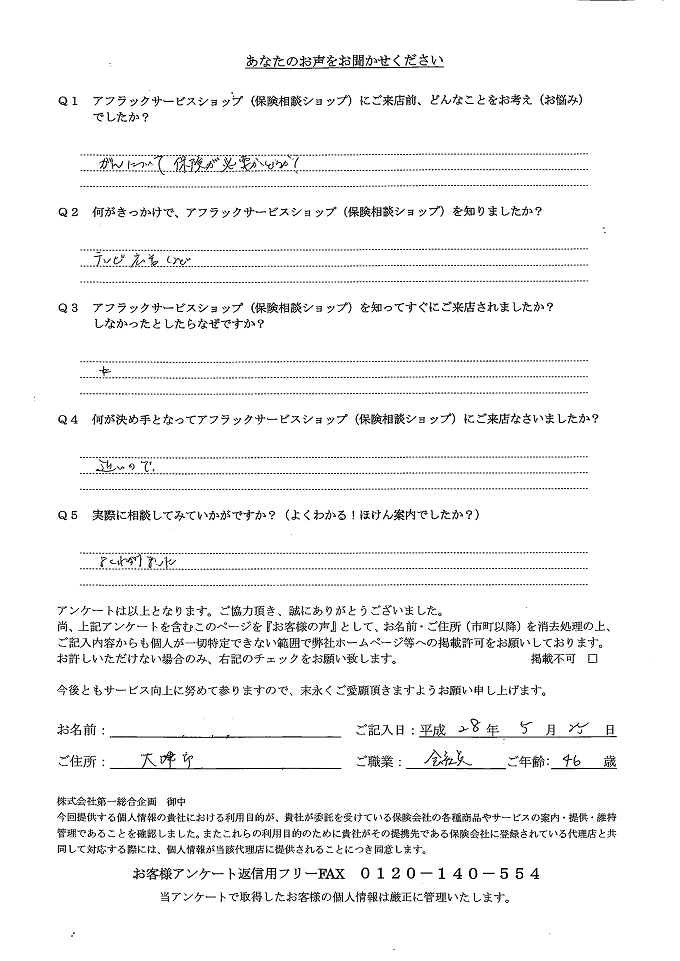 あなたのお声をお聞かせください
Q1 アフラックサービスショップ（保険相談ショップ）にご来店前、どんなことをお考え（お悩み）
でしたか？
がんについて 保険が必要か
Q2 何がきっかけで、アフラックサービスショップ（保険相談ショップ）を知りましたか？
テレビ
Q3 アフラックサービスショップ（保険相談ショップ）を知ってすぐにご来店されましたか？
しなかったとしたらなぜですか？
Q4 何が決め手となってアフラックサービスショップ（保険相談ショップ）にご来店なさいましたか？
近いので、
Q5 実際に相談してみていかがですか？（よくわかる！ほけん案内でしたか？）
よくわかりました
アンケートは以上となります。ご協力頂き、誠にありがとうございました。
尚、上記アンケートを含むこのページを『お客様の声』として、お名前・ご住所（市町以降）を消去処理の上、
ご記入内容からも個人が一切特定できない範囲で弊社ホームページ等への掲載許可をお願いしております。
お許しいただけない場合のみ、右記のチェックをお願い致します。 掲載不可 □
今後ともサービス向上に努めて参りますので、末永くご愛顧頂きますようお願い申し上げます。
お名前： ご記入日：平成 28 年 5 月 25 日
ご住所： ご職業： 会社員 ご年齢： 46 歳
株式会社第一総合企画 御中
今回提供する個人情報の貴社における利用目的が、貴社が委託を受けている保険会社の各種商品やサービスの案内・提供・維持
管理であることを確認しました。またこれらの利用目的のために貴社がその提携先である保険会社に登録されている代理店と共
同して対応する際には、個人情報が当該代理店に提供されることにつき同意します。
お客様アンケート返信用フリーFAX ０１２０－１４０－５５４
当アンケートで取得したお客様の個人情報は厳正に管理いたします。